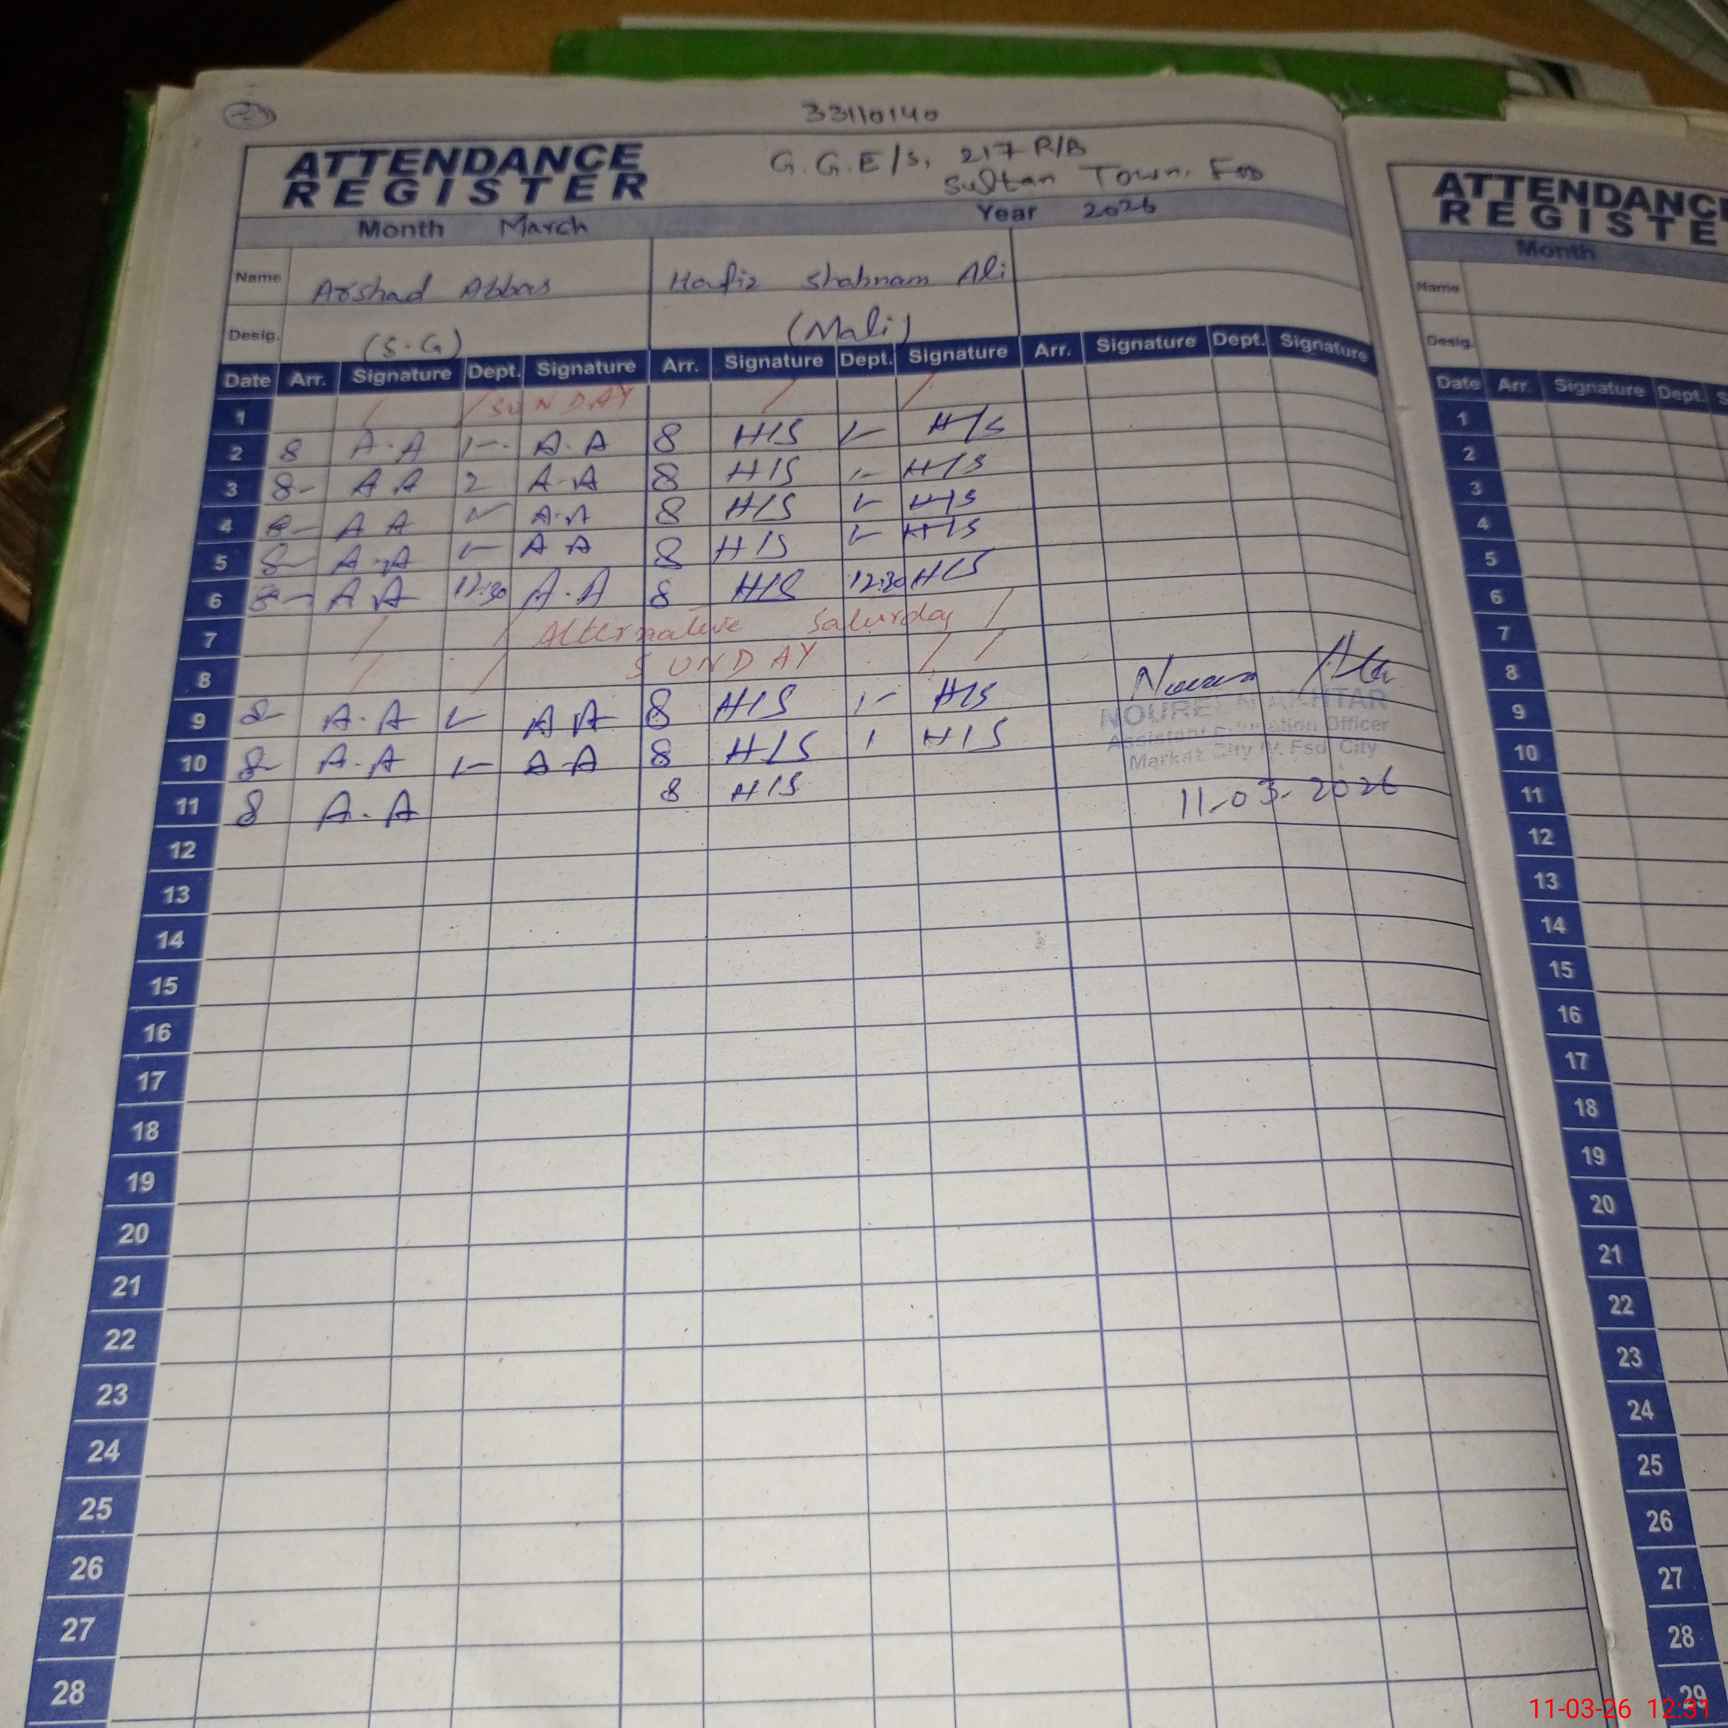 33110140
ATTENDANCE REGISTER
G.G.E/S, 217 R/B
Sultan Town, Fsd
Month March Year 2026
Name Arshad Abbas Hafiz Shabnam Ali
Desig. (S.G) (Mali)
Date Arr. Signature Dept. Signature Arr. Signature Dept. Signature Arr. Signature Dept. Signature
1 SUNDAY
2 8 A.A 1- A.A 8 H/S 1- H/S
3 8- A A 2 A.A 8 H/S 1- H/S
4 8- A A 1- A.A 8 H/S 1- H/S
5 8- A.A 1- A A 8 H/S 1- H/S
6 8- A A 12:30 A.A 8 H/S 12:30 H/S
7 Alternative Saturday
8 SUNDAY
9 8- A.A 1- A A 8 H/S 1- H/S
10 8- A.A 1- A.A 8 H/S 1 H/S
11 8 A.A 8 H/S
NOUREEN AKHTAR
Assistant Education Officer
Fsd City
11-03-2026
12
13
14
15
16
17
18
19
20
21
22
23
24
25
26
27
28
ATTENDANC
REGISTE
Month
Name
Desig.
Date Arr. Signature Dept. S
1
2
3
4
5
6
7
8
9
10
11
12
13
14
15
16
17
18
19
20
21
22
23
24
25
26
27
28
29
11-03-26 12:31